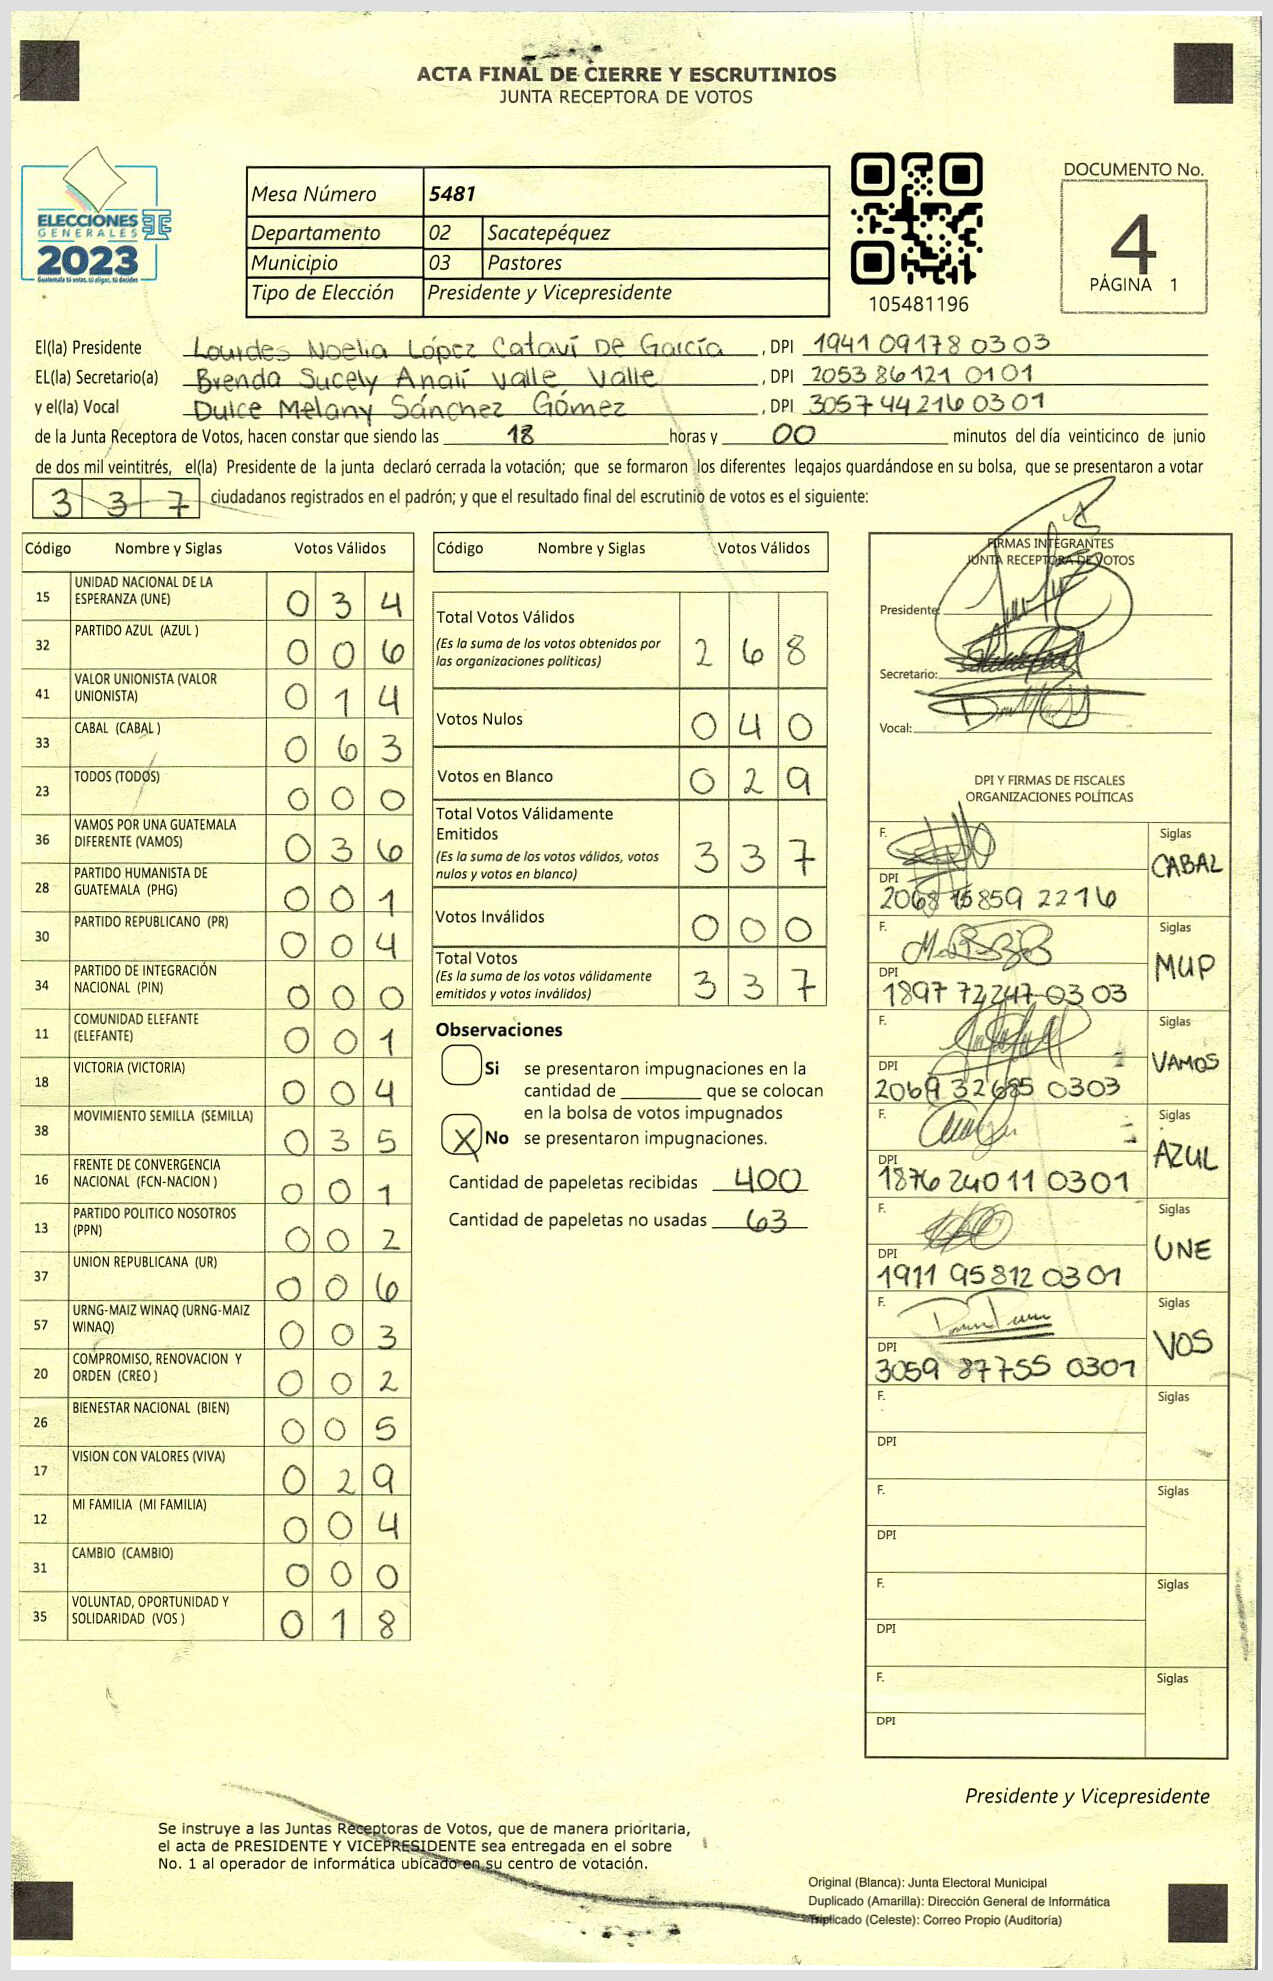 ACTA FINAL DE CIERRE Y ESCRUTINIOS
JUNTA RECEPTORA DE VOTOS
ELECCIONES
GENERALES
2023
Guatemala tú votas, tú eliges, tú decides
Mesa Número 5481
Departamento 02 Sacatepéquez
Municipio 03 Pastores
Tipo de Elección Presidente y Vicepresidente
105481196
DOCUMENTO No.
4
PÁGINA 1
El(la) Presidente Lourdes Noelia López Cataví De García, DPI 1941 09178 0303
EL(la) Secretario(a) Brenda Sucely Analí Valle Valle, DPI 2053 86121 0101
y el(la) Vocal Dulce Melany Sánchez Gómez, DPI 3057 44216 0301
de la Junta Receptora de Votos, hacen constar que siendo las 18 horas y 00 minutos del día veinticinco de junio
de dos mil veintitrés, el(la) Presidente de la junta declaró cerrada la votación; que se formaron los diferentes legajos quardándose en su bolsa, que se presentaron a votar
337 ciudadanos registrados en el padrón; y que el resultado final del escrutinio de votos es el siguiente:
Código Nombre y Siglas Votos Válidos
15 UNIDAD NACIONAL DE LA ESPERANZA (UNE) 034
32 PARTIDO AZUL (AZUL ) 006
41 VALOR UNIONISTA (VALOR UNIONISTA) 014
33 CABAL (CABAL ) 063
23 TODOS (TODOS) 000
36 VAMOS POR UNA GUATEMALA DIFERENTE (VAMOS) 036
28 PARTIDO HUMANISTA DE GUATEMALA (PHG) 001
30 PARTIDO REPUBLICANO (PR) 004
34 PARTIDO DE INTEGRACIÓN NACIONAL (PIN) 000
11 COMUNIDAD ELEFANTE (ELEFANTE) 001
18 VICTORIA (VICTORIA) 004
38 MOVIMIENTO SEMILLA (SEMILLA) 035
16 FRENTE DE CONVERGENCIA NACIONAL (FCN-NACION ) 001
13 PARTIDO POLITICO NOSOTROS (PPN) 002
37 UNION REPUBLICANA (UR) 006
57 URNG-MAIZ WINAQ (URNG-MAIZ WINAQ) 003
20 COMPROMISO, RENOVACION Y ORDEN (CREO ) 002
26 BIENESTAR NACIONAL (BIEN) 005
17 VISION CON VALORES (VIVA) 029
12 MI FAMILIA (MI FAMILIA) 004
31 CAMBIO (CAMBIO) 000
35 VOLUNTAD, OPORTUNIDAD Y SOLIDARIDAD (VOS ) 018
Código Nombre y Siglas Votos Válidos
Total Votos Válidos 268
(Es la suma de los votos obtenidos por
las organizaciones políticas)
Votos Nulos 040
Votos en Blanco 029
Total Votos Válidamente
Emitidos 337
(Es la suma de los votos válidos, votos
nulos y votos en blanco)
Votos Inválidos 000
Total Votos 337
(Es la suma de los votos válidamente
emitidos y votos inválidos)
Observaciones
Si se presentaron impugnaciones en la
cantidad de ________ que se colocan
en la bolsa de votos impugnados
X No se presentaron impugnaciones.
Cantidad de papeletas recibidas 400
Cantidad de papeletas no usadas 63
FIRMAS INTEGRANTES
JUNTA RECEPTORA DE VOTOS
Presidente:
Secretario:
Vocal:
DPI Y FIRMAS DE FISCALES
ORGANIZACIONES POLÍTICAS
F. Siglas CABAL
DPI 2068 15859 2216
F. Siglas MUP
DPI 1897 72247 0303
F. Siglas VAMOS
DPI 2069 32685 0303
F. Siglas AZUL
DPI 1876 24011 0301
F. Siglas UNE
DPI 1911 95812 0301
F. Siglas VOS
DPI 3059 87755 0301
F. Siglas
DPI
F. Siglas
DPI
F. Siglas
DPI
F. Siglas
DPI
Presidente y Vicepresidente
Se instruye a las Juntas Receptoras de Votos, que de manera prioritaria,
el acta de PRESIDENTE Y VICEPRESIDENTE sea entregada en el sobre
No. 1 al operador de informática ubicado en su centro de votación.
Original (Blanca): Junta Electoral Municipal
Duplicado (Amarilla): Dirección General de Informática
Triplicado (Celeste): Correo Propio (Auditoría)